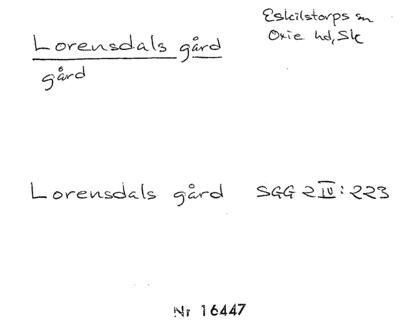 Lorensdals gård
gård
Eskilstorps sn
Oxie hd, Sk
Lorensdals gård SGG 2 IV: 223
Nr 16447